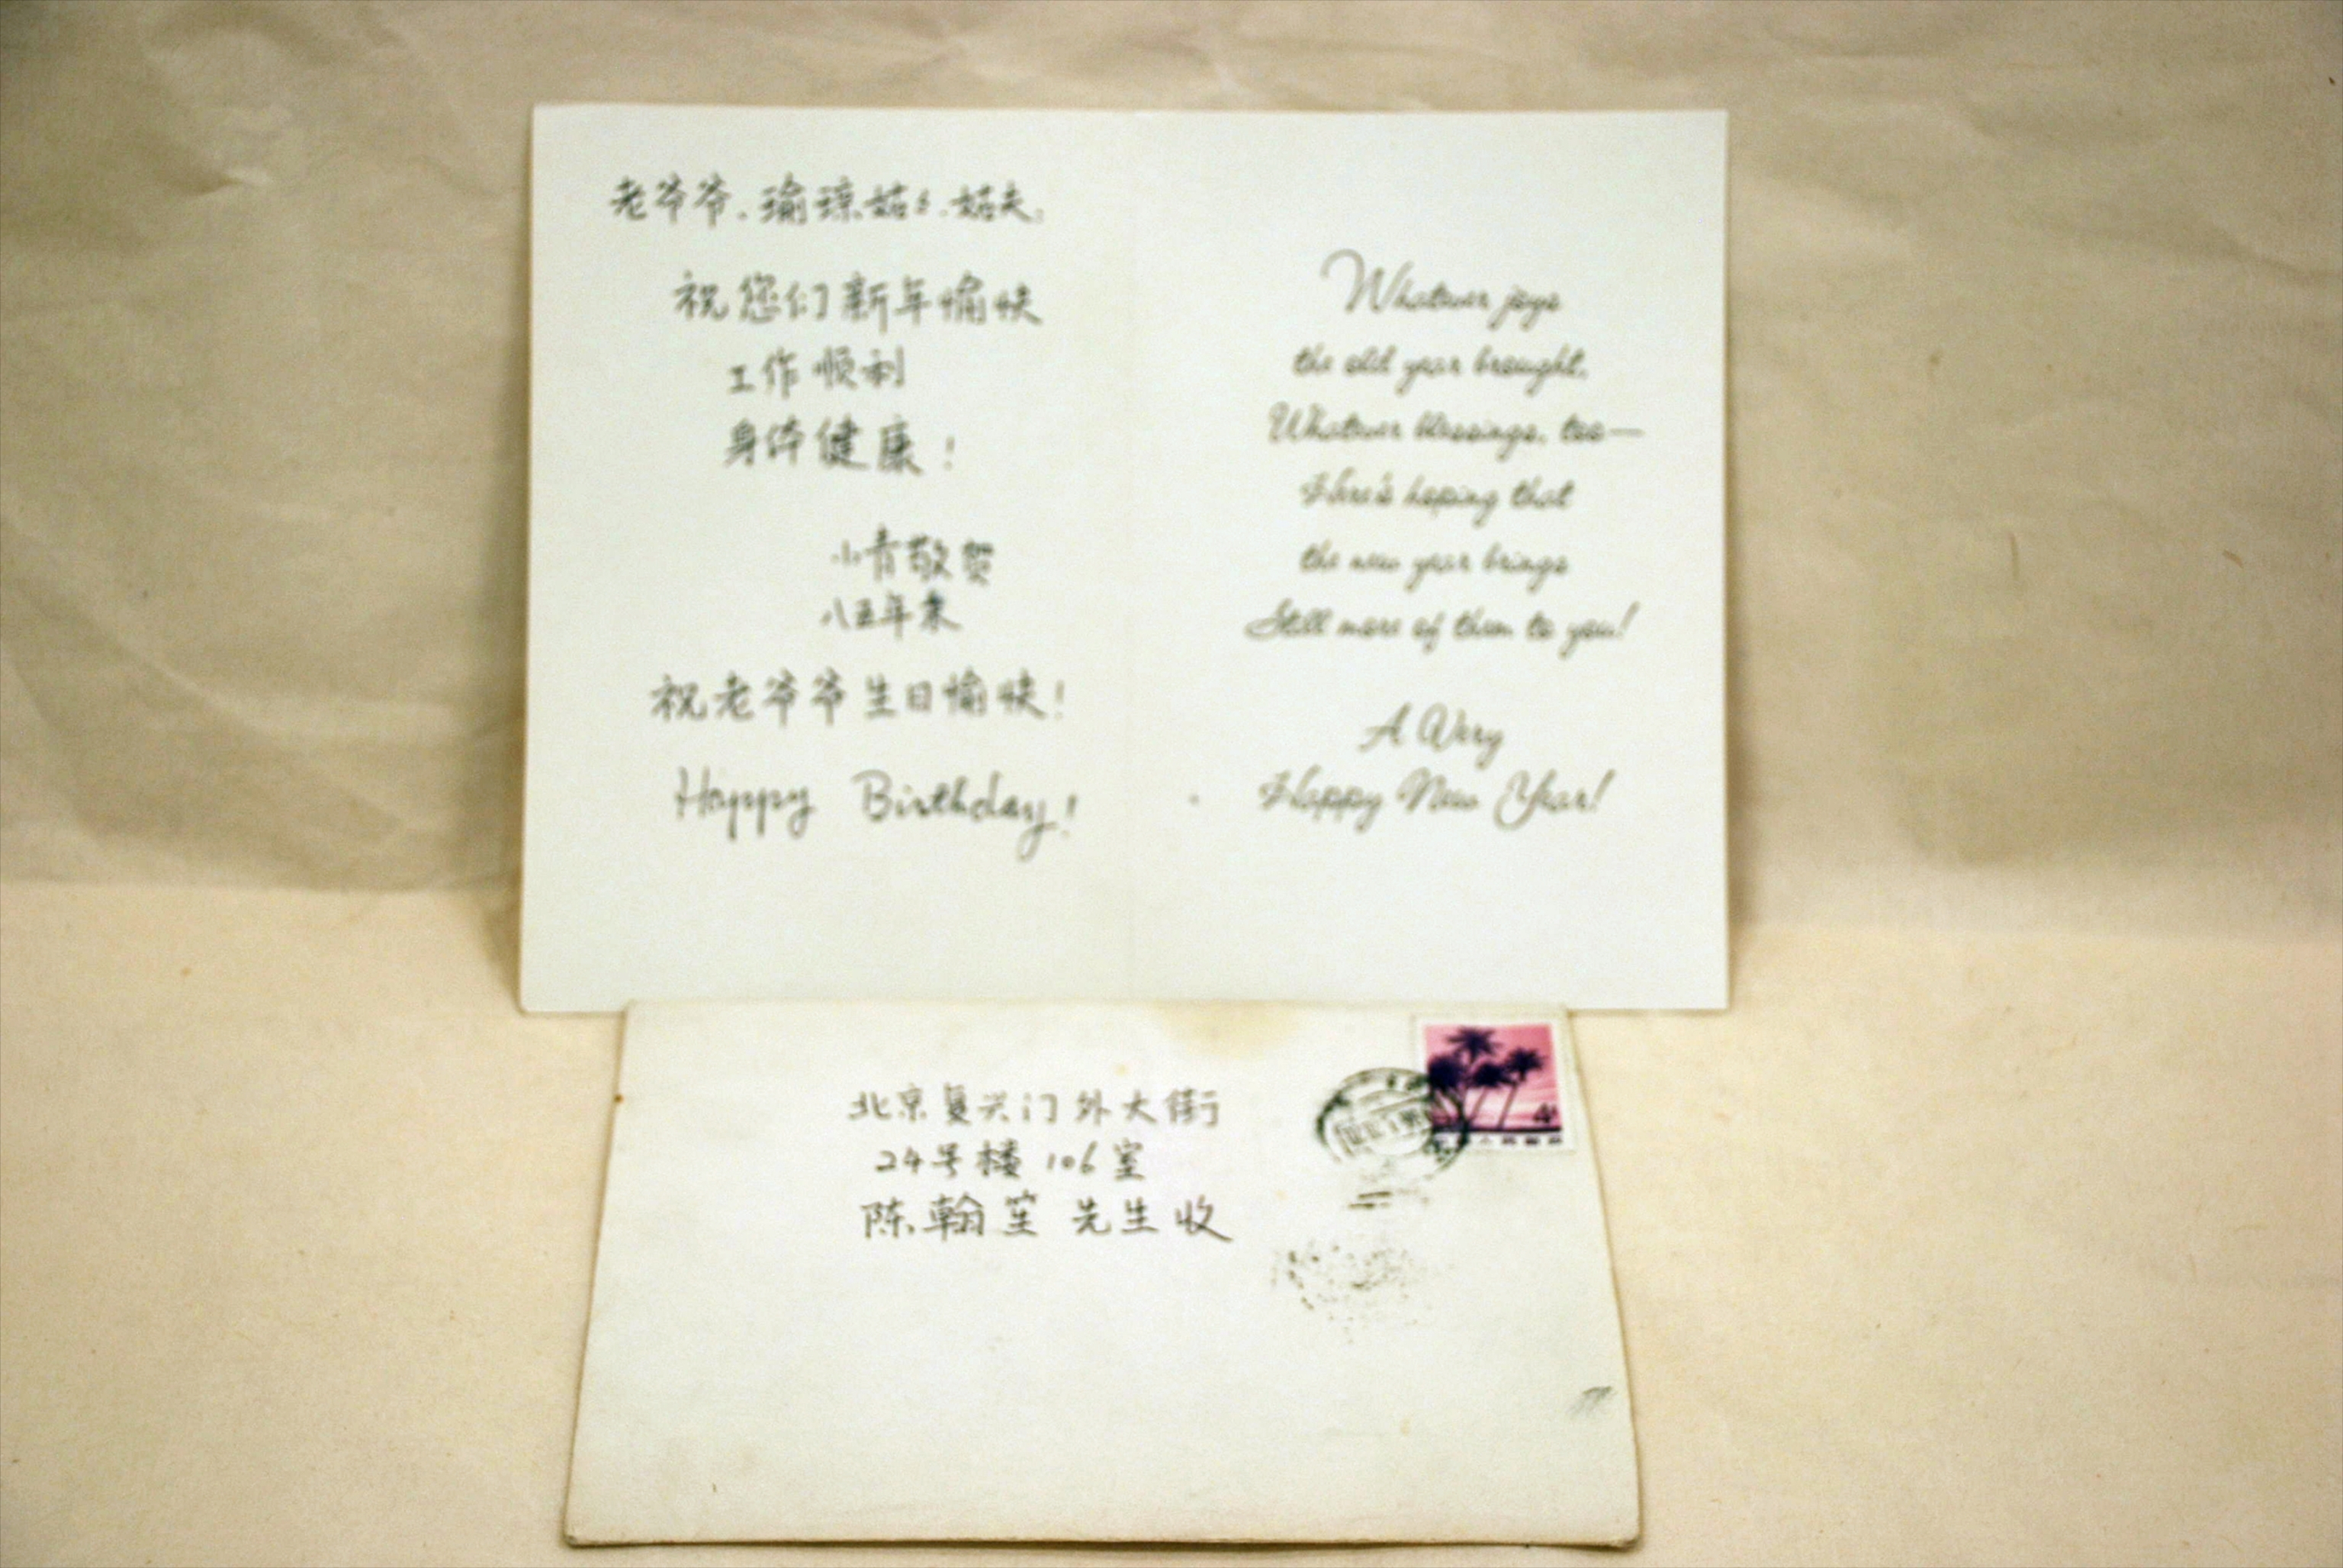 老爷爷、瑜琼姑姑、姑夫:
祝您们新年愉快
工作顺利
身体健康!
小青敬贺
八五年末
祝老爷爷生日愉快!
Happy Birthday!
Whatever joys
the old year brought,
Whatever blessings, too—
Here's hoping that
the new year brings
Still more of them to you!
A Very
Happy New Year!
北京复兴门外大街
24号楼 106室
陈翰笙 先生收